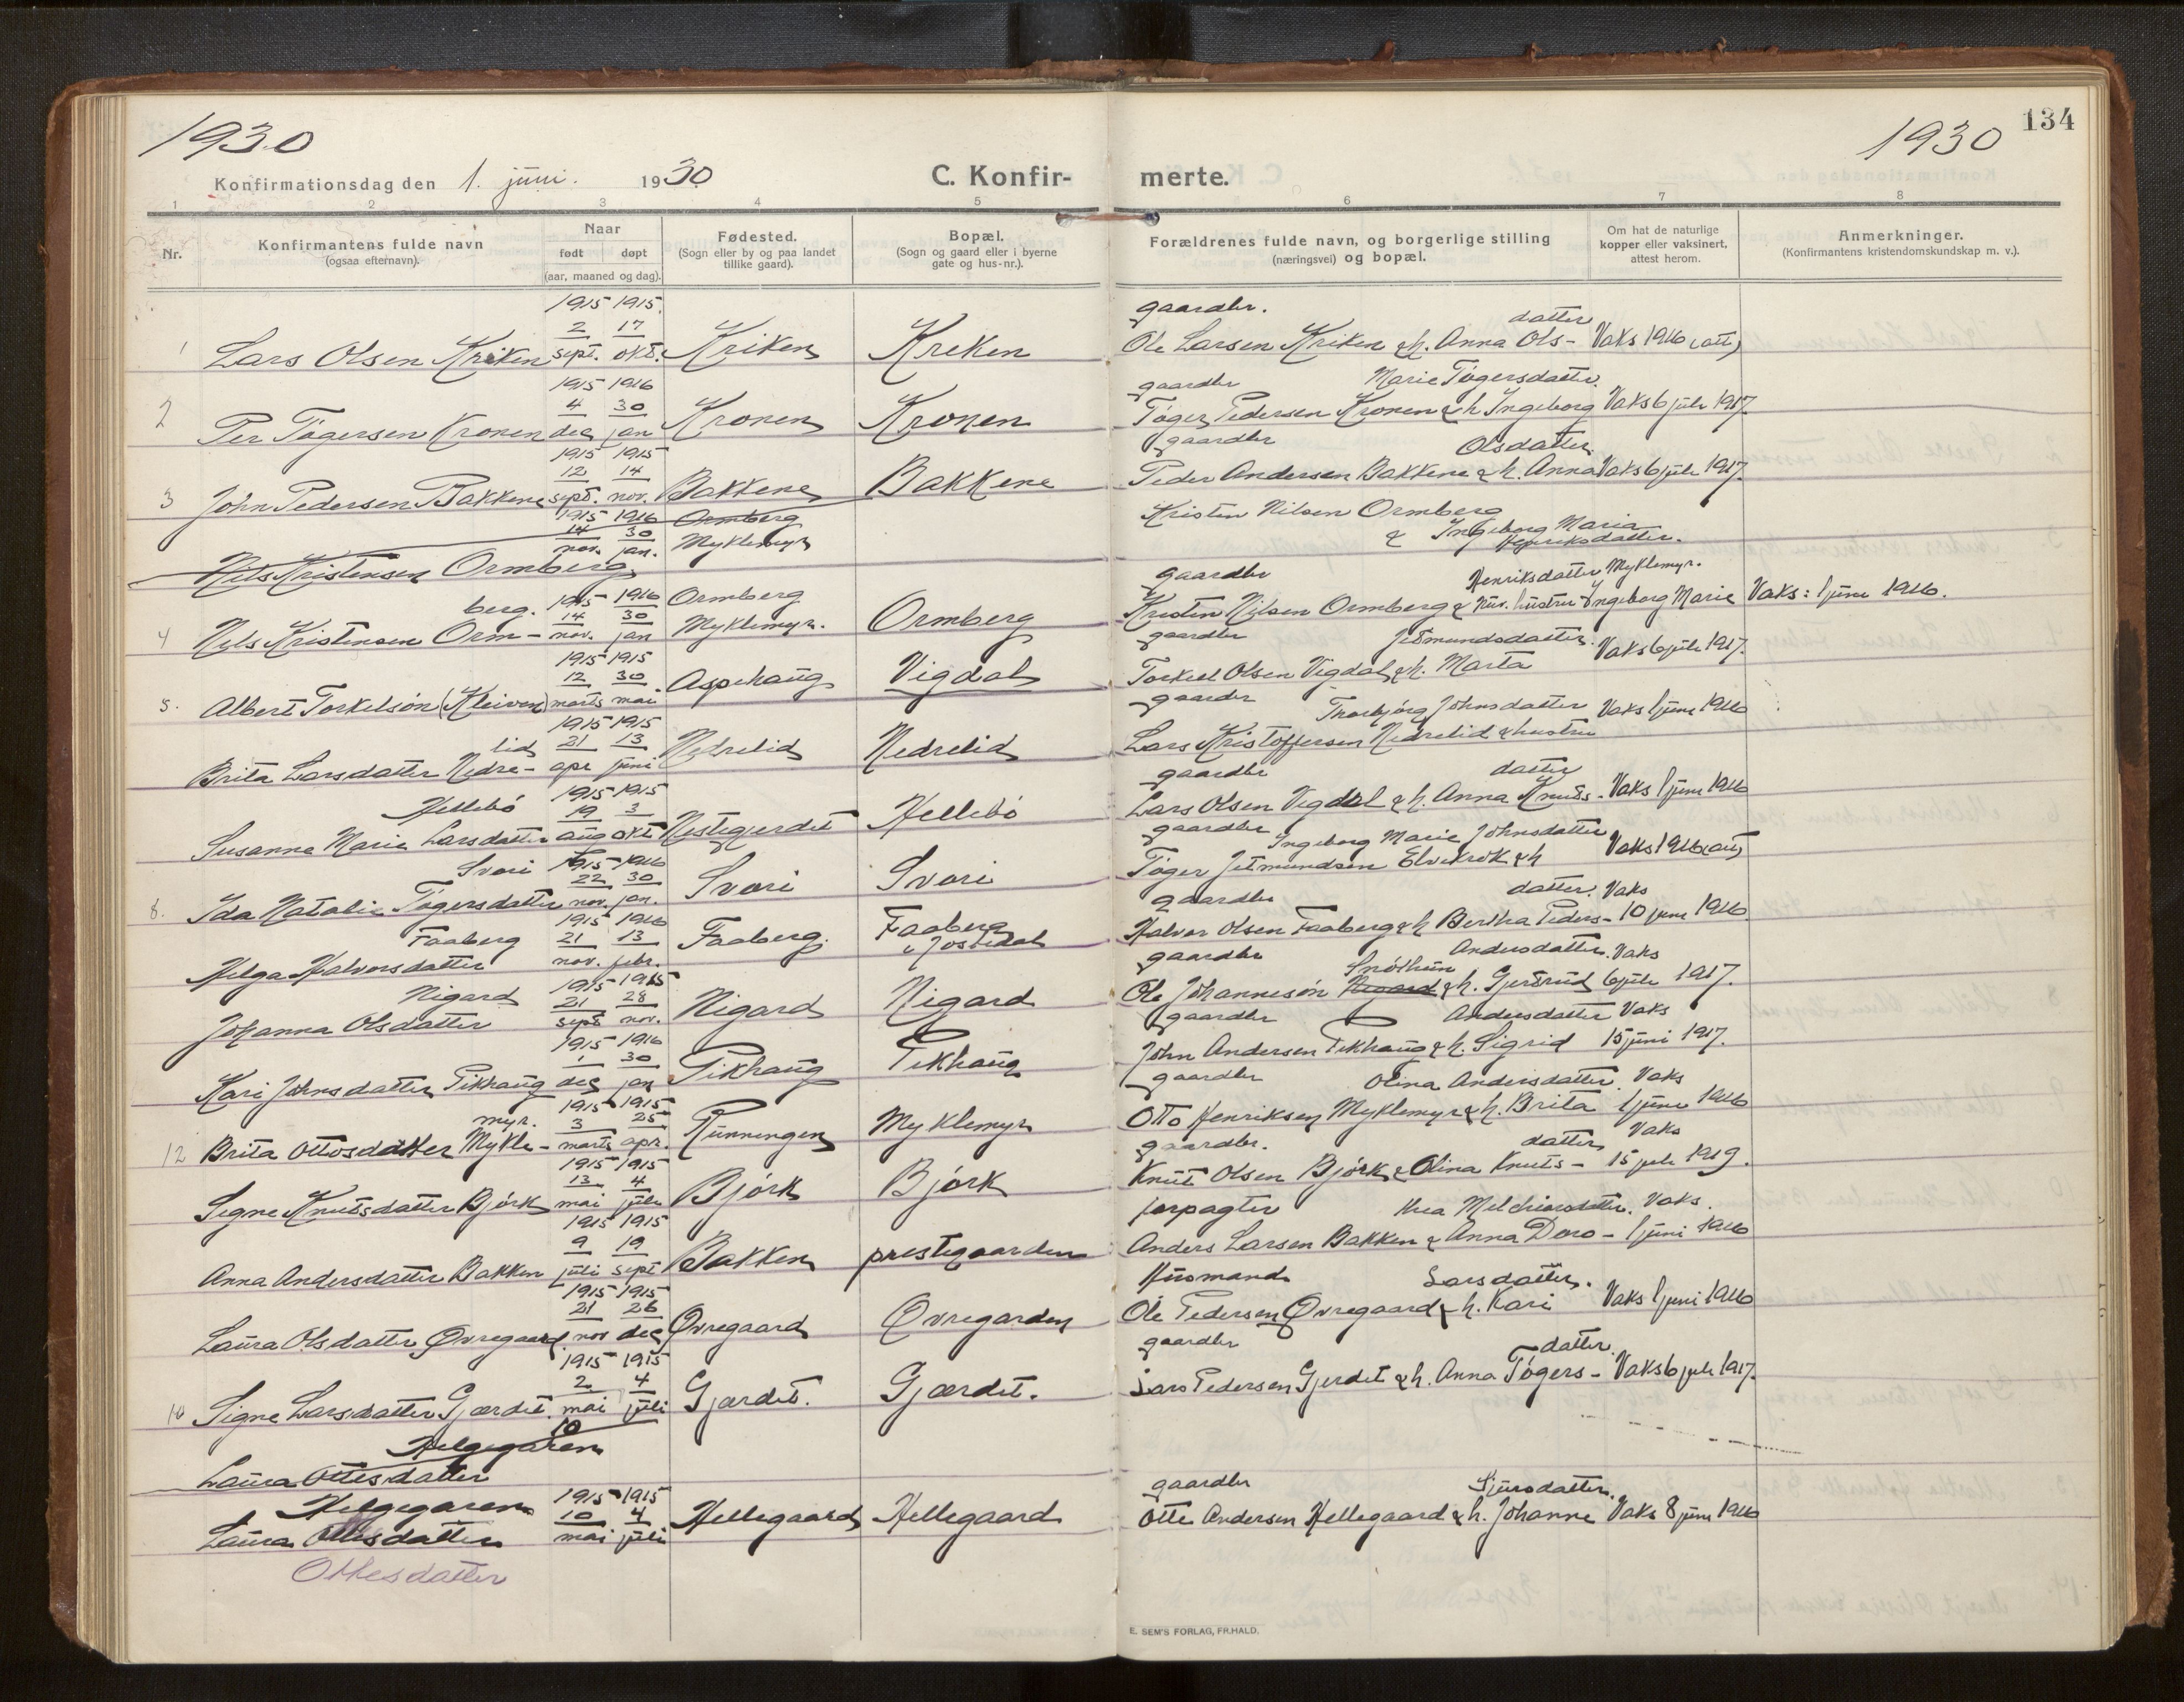 1930
1930
134
Konfirmationsdag den 1. juni. 1930
C. Konfir- merte.
1 2 3 4 5 6 7 8
Nr.
Konfirmantens fulde navn
(ogsaa efternavn).
Naar
født døpt
(aar, maaned og dag).
Fødested.
(Sogn eller by og paa landet
tillike gaard).
Bopæl.
(Sogn og gaard eller i byerne
gate og hus-nr.).
Forældrenes fulde navn, og borgerlige stilling
(næringsvei) og bopæl.
Om hat de naturlige
kopper eller vaksinert,
attest herom.
Anmerkninger.
(Konfirmantens kristendomskundskap m. v.).
1915 1915 gaardbr. datter
1 Lars Olsen Kriken 2 sept. 17 okt. Kriken Kreken Ole Larsen Kriken & h. Anna Ols- Vaks 1916 (att)
1915 1916 gaardbr Marie Tøgersdatter
2 Per Tøgersen Kronen 4 des 30 jan Kronen Kronen Tøger Pedersen Kronen & h Ingeborg Vaks 6 juli 1917.
1915 1915 gaardbr Olsdatter
3 John Pedersen Bakkene 12 sept. 14 nov. Bakkene Bakkene Peder Andersen Bakkene & h. Anna Vaks 6 juli 1917.
1915 1916 Ormberg Kristen Nilsen Ormberg
Nils Kristensen Ormberg 14 nov. 30 jan. Myklemyr & Ingeborg Maria Henriksdatter.
berg. 1915 1916 Ormberg gaardbr Henriksdatter Myklemyr.
4 Nils Kristensen Orm- 14 nov. 30 jan Myklemyr. Ormberg Kristen Nilsen Ormberg & nuv. hustru Ingeborg Marie Vaks: 1 juni 1916.
1915 1915 gaardbr Jetmundsdatter.
5. Albert Torkelsøn (Kleiven) 12 marts 30 mai Aspehaug Vigdal Torkel Olsen Vigdal & h. Marta Vaks 6 juli 1917.
lid 1915 1915 gaardbr Thorbjørg Johnsdatter
Brita Larsdatter Nedre- 21 apr 13 juni Nedrelid Nedrelid Lars Kristoffersen Nedrelid & hustru Vaks 1 juni 1916
Hellebø 1915 1915 gaardbr datter
Susanne Marie Larsdatter 19 aug 3 okt Nestegjerdet Hellebø Lars Olsen Vigdal & h. Anna Knuts- Vaks 1 juni 1916
Svori 1915 1916 gaardbr Ingeborg Marie Johnsdatter
8. Ida Natalie Tøgersdatter 22 nov. 30 jan. Svori Svori Tøger Jetmundsen Elvekrok & h Vaks 1916 (att)
Faaberg 1915 1916 gaardbr datter. Vaks
Helga Halvorsdatter 21 nov. 13 febr. Faaberg. Faaberg i Jostedal Halvor Olsen Faaberg & h Bertha Peders- 10 juni 1916
Nigard 1915 1915 gaardbr Snøthun Andersdatter. Vaks
Johanna Olsdatter 21 sept 28 nov. Nigard Nigard Ole Johannesøn & h. Gjertrud 6 juli 1917.
1915 1916 gaardbr Andersdatter Vaks
Kari Johnsdatter Pikhaug 1 des 30 jan Pikhaug Pikhaug John Andersen Pikhaug & h. Sigrid 15 juni 1917.
myr. 1915 1915 gaardbr Olina Andersdatter. Vaks
12 Brita Ottosdatter Mykle- 3 marts 25 apr. Runningen Myklemyr Otto Henriksen Myklemyr & h. Brita 1 juni 1916
1915 1915 gaardbr. datter Vaks
Signe Knutsdatter Bjørk 13 mai 4 juli Bjørk Bjørk Knut Olsen Bjørk & Olina Knuts- 15 juli 1919.
1915 1915 forpagter thea Melchiorsdatter. Vaks.
Anna Andersdatter Bakken 9 juli 19 sept Bakken prestegaarden Anders Larsen Bakken & Anna Doro- 1 juni 1916
1915 1915 Husmand Larsdatter.
Laura Olsdatter Øvregaard 21 nov 26 des Øvregaard Øvregarden Ole Pedersen Øvregaard & h. Kari Vaks 1 juni 1916
1915 1915 gaardbr datter.
16 Signe Larsdatter Gjærdet. 2 mai 4 juli Gjærdet. Gjærdet. Lars Pedersen Gjerdet & h. Anna Tøgers- Vaks 6 juli 1917.
10
Helgegaren
Laura Ottesdatter
Helgegaren 1915 1915 gaardbr Sjursdatter.
Laura Ottesdatter 10 mai 4 juli Hellegaard Hellegaard Otte Andersen Hellegaard & h. Johanne Vaks 8 juni 1916
Ottesdatter
E. SEM'S FORLAG, FR.HALD.